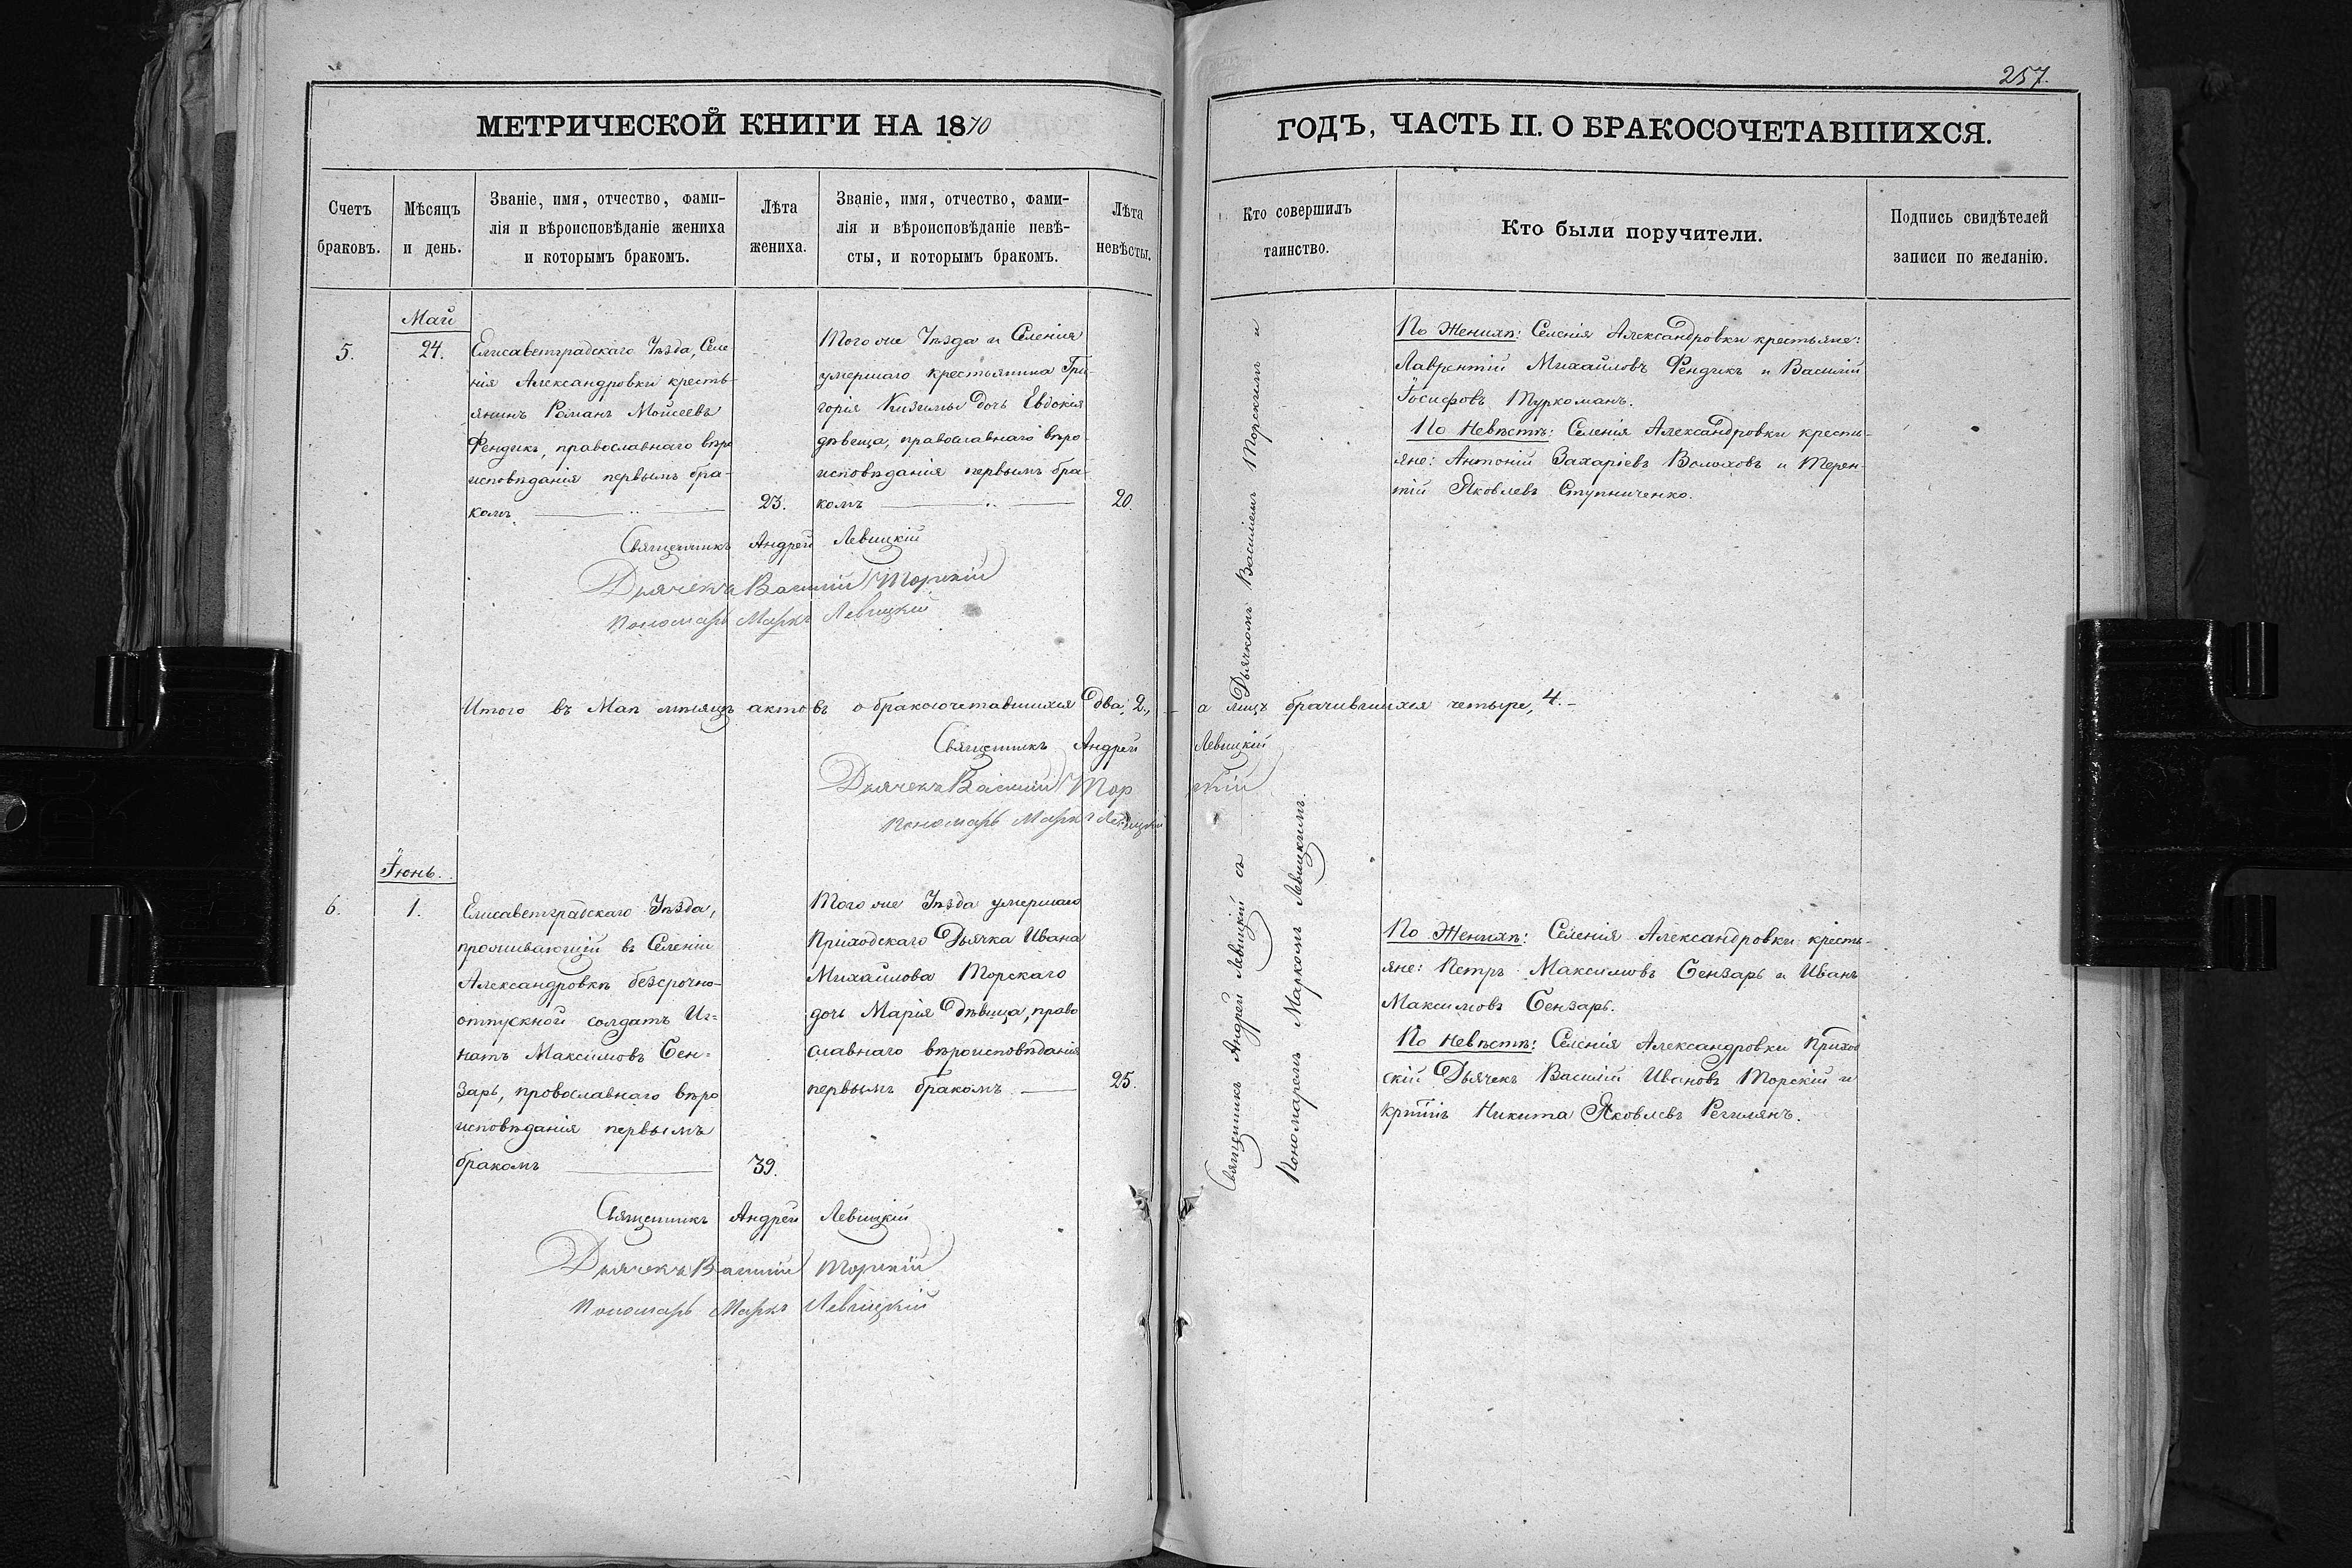 257.
МЕТРИЧЕСКОЙ КНИГИ НА 1870
ГОДЪ, ЧАСТЬ II. О БРАКОСОЧЕТАВШИХСЯ.
Счетъ
браковъ.
Мѣсяцъ
и день.
Званіе, имя, отчество, фами-
лія и вѣроисповѣданіе жениха
и которымъ бракомъ.
Лѣта
жениха.
Званіе, имя, отчество, фами-
лія и вѣроисповѣданіе невѣ-
сты, и которымъ бракомъ.
Лѣта
невѣсты.
Кто совершилъ
таинство.
Кто были поручители.
Подпись свидѣтелей
записи по желанію.
Май
5.
24.
Елисаветградскаго Уѣзда, Селе
нія Александровки кресть-
янинъ Романъ Моисеевъ
Фендикъ, православнаго вѣро
исповѣданія первымъ бра-
комъ
23.
Того же Уѣзда и Селенія
умершаго крестьянина Гри-
горія Кизимы дочь Евдокія
дѣвица, православнаго вѣро-
исповѣданія первымъ бра-
комъ
20.
Священникъ Андрей Левицкій
Дьячекъ Василій Торскій
Пономарь Маркъ Левицкій
По Женихѣ: Селенія Александровки крестьяне:
Лаврентій Михайловъ Фендикъ и Василій
Іосифовъ Туркоманъ.
По Невѣстѣ: Селенія Александровки кресть-
яне: Антоній Захаріевъ Волоховъ и Терен-
тій Яковлевъ Ступниченко.
Итого въ Маѣ мѣсяцѣ актовъ о бракосочетавшихся два, 2., - а лицъ брачившихся четыре, 4. -
Священникъ Андрей Левицкій
Дьячекъ Василій Торскій
Пономарь Маркъ Левицкій
Священникъ Андрей Левицкій съ Дьячкомъ Василіемъ Торскимъ и
Пономаремъ Маркомъ Левицкимъ.
Іюнь.
6.
1.
Елисаветградскаго Уѣзда,
проживающій въ Селеніи
Александровкѣ безсрочно-
отпускной солдатъ Иг=
натъ Максимовъ Бен=
зарь, провославнаго вѣро
исповѣданія первымъ
бракомъ
39.
Того же Уѣзда умершаго
Приходскаго Дьячка Ивана
Михайлова Торскаго
дочь Марія дѣвица, право
славнаго вѣроисповѣданія
первымъ бракомъ
25.
Священникъ Андрей Левицкій
Дьячекъ Василій Торскій
Пономарь Маркъ Левицкій
По Женихѣ: Селенія Александровки кресть-
яне: Петръ Максимовъ Бензарь и Иванъ
Максимовъ Бензарь.
По Невѣстѣ: Селенія Александровки Приход
скій Дьячекъ Василій Ивановъ Торскій и
Никита Яковлевъ